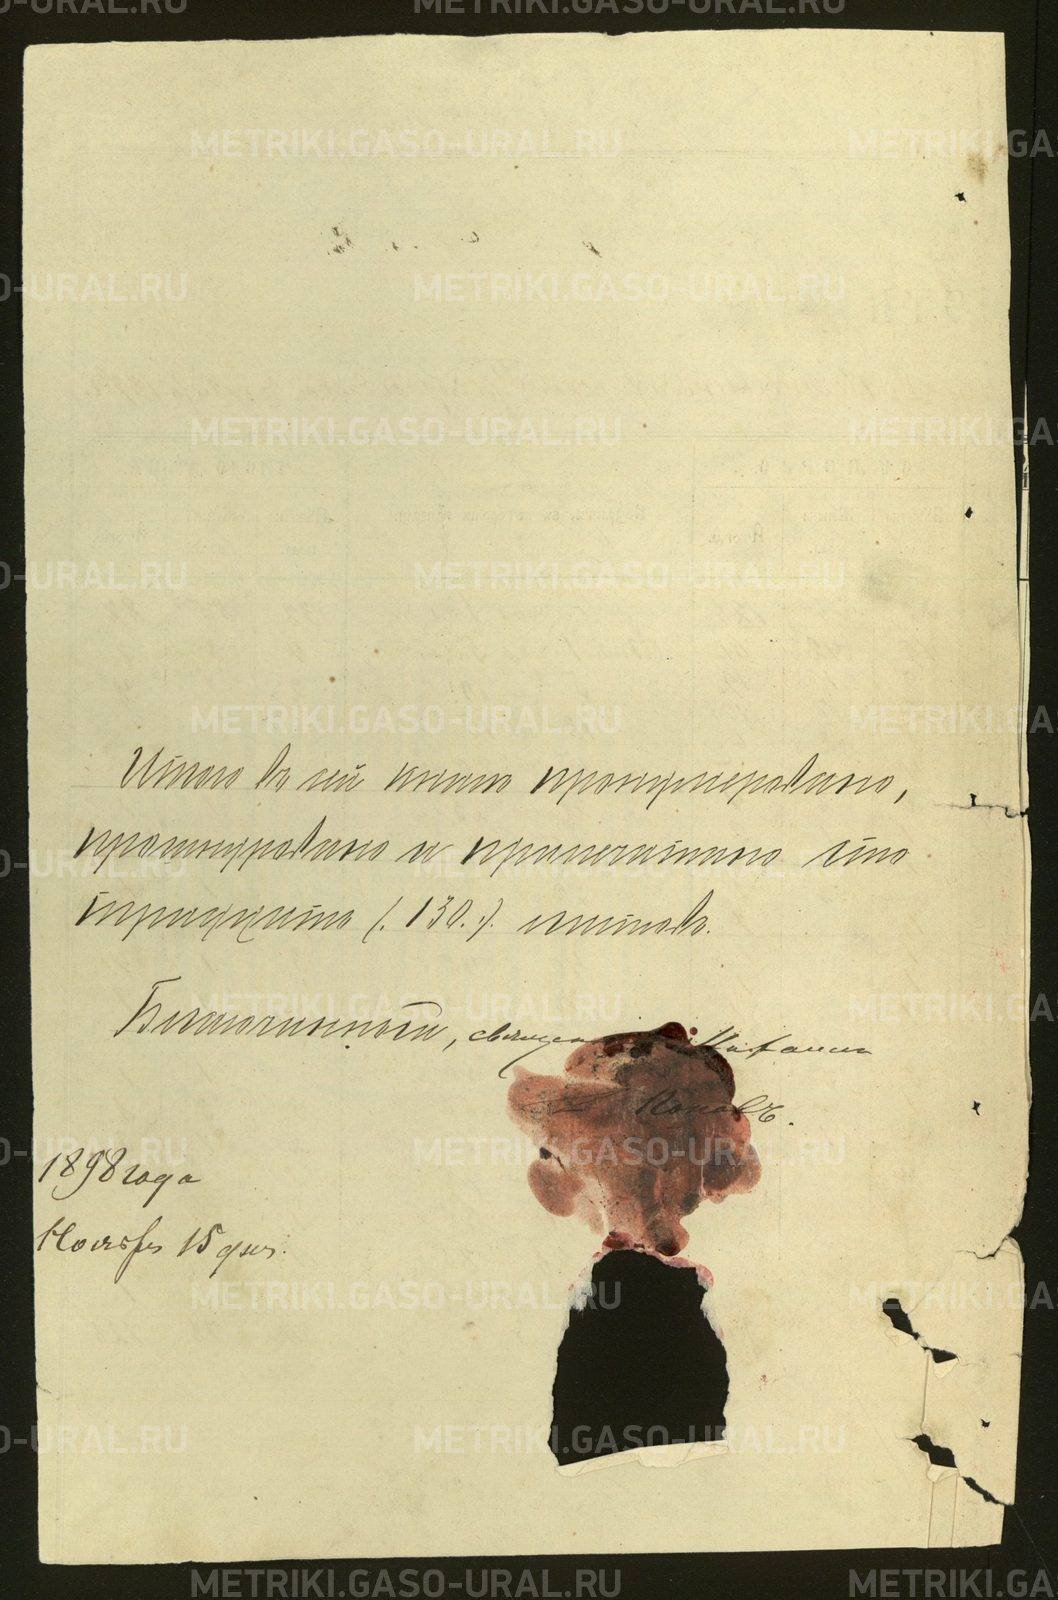 Итого въ сей книгѣ пронумеровано,
прошнуровано и припечатано сто
тридцать (.130.). листовъ.
Благочинный, священ
Поповъ.
1898 года
Ноября 15 дня.
METRIKI.GASO-URAL.RU